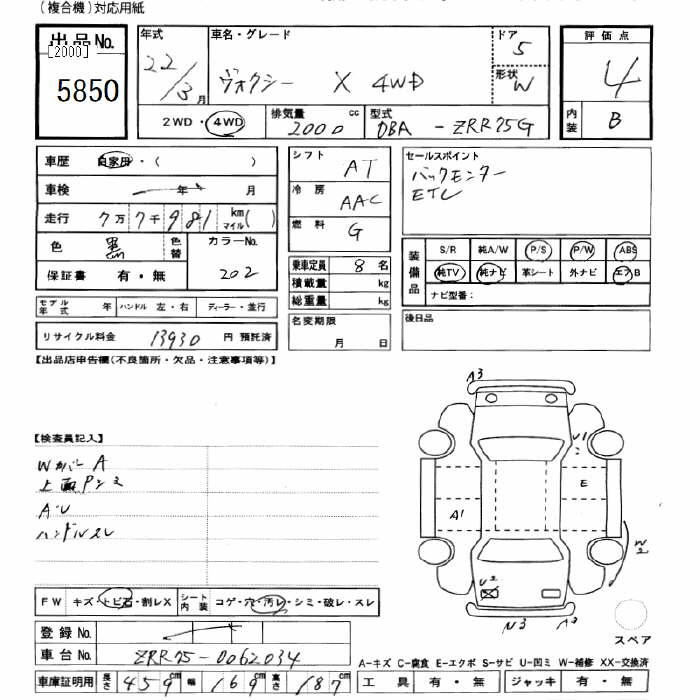 (複合機)対応用紙
出品No.
[2000]
5850
年式
22/3月
車名・グレード
ヴォクシー X 4WD
ドア
5
形状
W
評価点
4
内装
B
2WD・4WD
排気量
2000 cc
型式
DBA-ZRR75G
車歴 自家用・( )
車検 年 月
走行 7万7千981 km マイル( )
色 黒 色替
カラーNo.
202
保証書 有・無
シフト AT
冷房 AAC
燃料 G
乗車定員 8名
積載量 kg
総重量 kg
名変期限
月 日
セールスポイント
バックモニター
ETC
装備品
S/R 純A/W P/S P/W ABS
純TV 純ナビ 革シート 外ナビ エアB
ナビ型番:
後日品
モデル年式 年 ハンドル 左・右 ディーラー・並行
リサイクル料金 13930 円 預託済
【出品店申告欄(不良箇所・欠品・注意事項等)】
【検査員記入】
A・U
ハンドルスレ
A3
U1
E
A1
W2
U2
N3
スペア
FW キズ・トビ石・割レX シート内装 コゲ・穴・汚レ・シミ・破レ・スレ
登録No.
車台No. ZRR75-0062034
車庫証明用 長さ 459cm 幅 169cm 高さ 187cm
A-キズ C-腐食 E-エクボ S-サビ U-凹ミ W-補修 XX-交換済
工具 有・無 ジャッキ 有・無